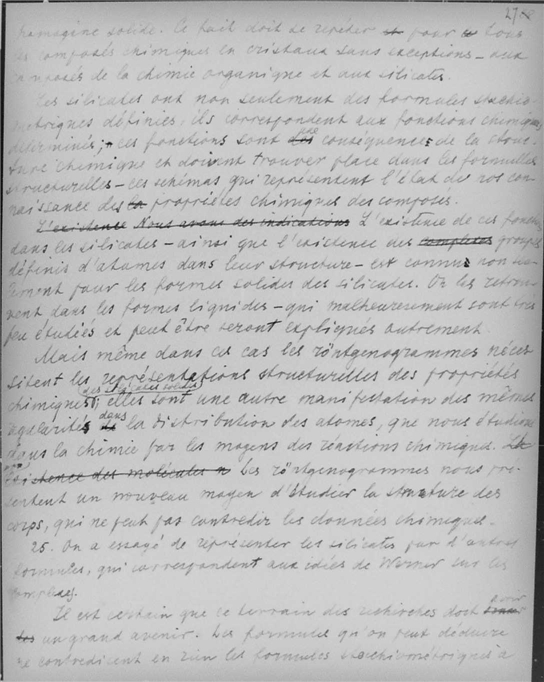 27
hamagène solide. Ce fait doit se répéter pour tous
les composés chimiques en cristaux sans exceptions – aux
composés de la chimie organique et aux silicates.
Les silicates ont non seulement des formules stœchio-
métriques définies; ils correspondent aux fonctions chimiques
déterminés; ces fonctions sont des conséquences de la struc-
ture chimique et doivent trouver place dans les formules
structurelles – ces schémas qui représentent l'état de nos con-
naissance des propriétés chimiques des composés.
L'existence Nous avons des indications L'existence de ces fonctions
dans les silicates – ainsi que l'existence des complexes groupes
définis d'atomes dans leur structure – est connue non seu-
lement pour les formes solides des silicates. On les retrou-
vent dans les formes liquides – qui malheureusement sont très
peu étudiées et peut être seront expliqués autrement.
Mais même dans ce cas les röntgenogrammes néces-
sitent les représentations structurelles des propriétés
chimiques des silicates solides; elles sont une autre manifestation des mêmes
régularités dans la distribution des atomes, que nous étudions
dans la chimie par les moyens des réactions chimiques. La
existence des molécules Les röntgenogrammes nous pré-
sentent un nouveau moyen d'étudier la structure des
corps, qui ne peut pas contredir les données chimiques.
25. On a essagé de représenter les silicates par d'autres
formules, qui correspondent aux idées de Werner sur les
complexes.
Il est certain que ce terrain des recherches doit avoir
un grand avenir. Les formules qu'on peut déduire
ne contredisent en rien les formules stœchiométriques à